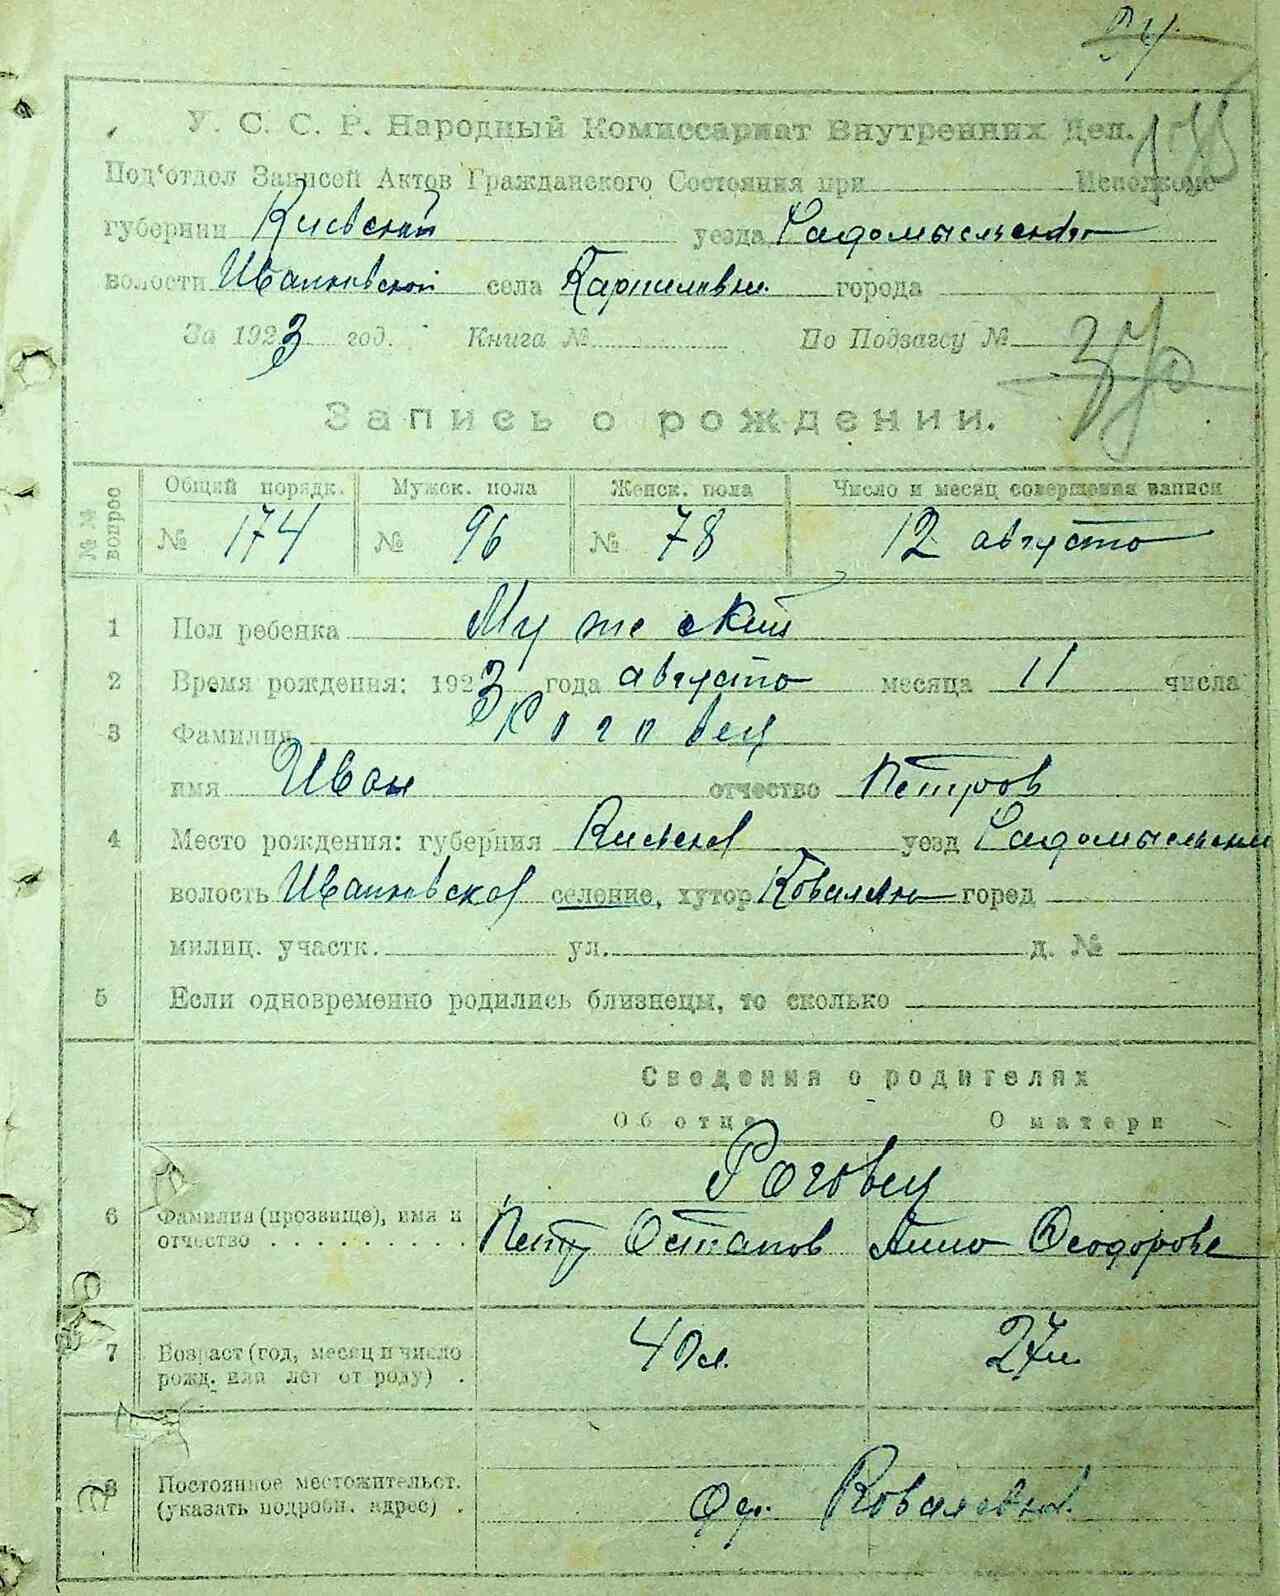 У. С. С. Р. Народный Комиссариат Внутренних Дел.
Под'отдел Записей Актов Гражданского Состояния при Исполкоме
губернии Киевский уезда Радомысльского
волости Иванковской села Карпиловки города
За 1923 год. Книга № По Подзагсу №
Запись о рождении.
№ № вопрос Общий порядк. Мужск. пола Женск. пола Число и месяц совершения записи
№ 174 № 96 № 78 12 августа
1 Пол ребенка Мужеский
2 Время рождения: 1923 года августа месяца 11 числа
3 Фамилия Роговец
имя Иван отчество Петров
4 Место рождения: губерния Киевской уезд Радомысльский
волость Иванковской селение, хутор город
милиц. участк. ул. д. №
5 Если одновременно родились близнецы, то сколько
Сведения о родителях
Об отце О матери
Роговец
6 Фамилия (прозвище), имя и
отчество . . . . . . . . . . Петр Остапов Анна Феодорова
7 Возраст (год, месяц и число
рожд. или лет от роду) . 40 л. 27 л.
8 Постоянное местожительст.
(указать подробн. адрес) .